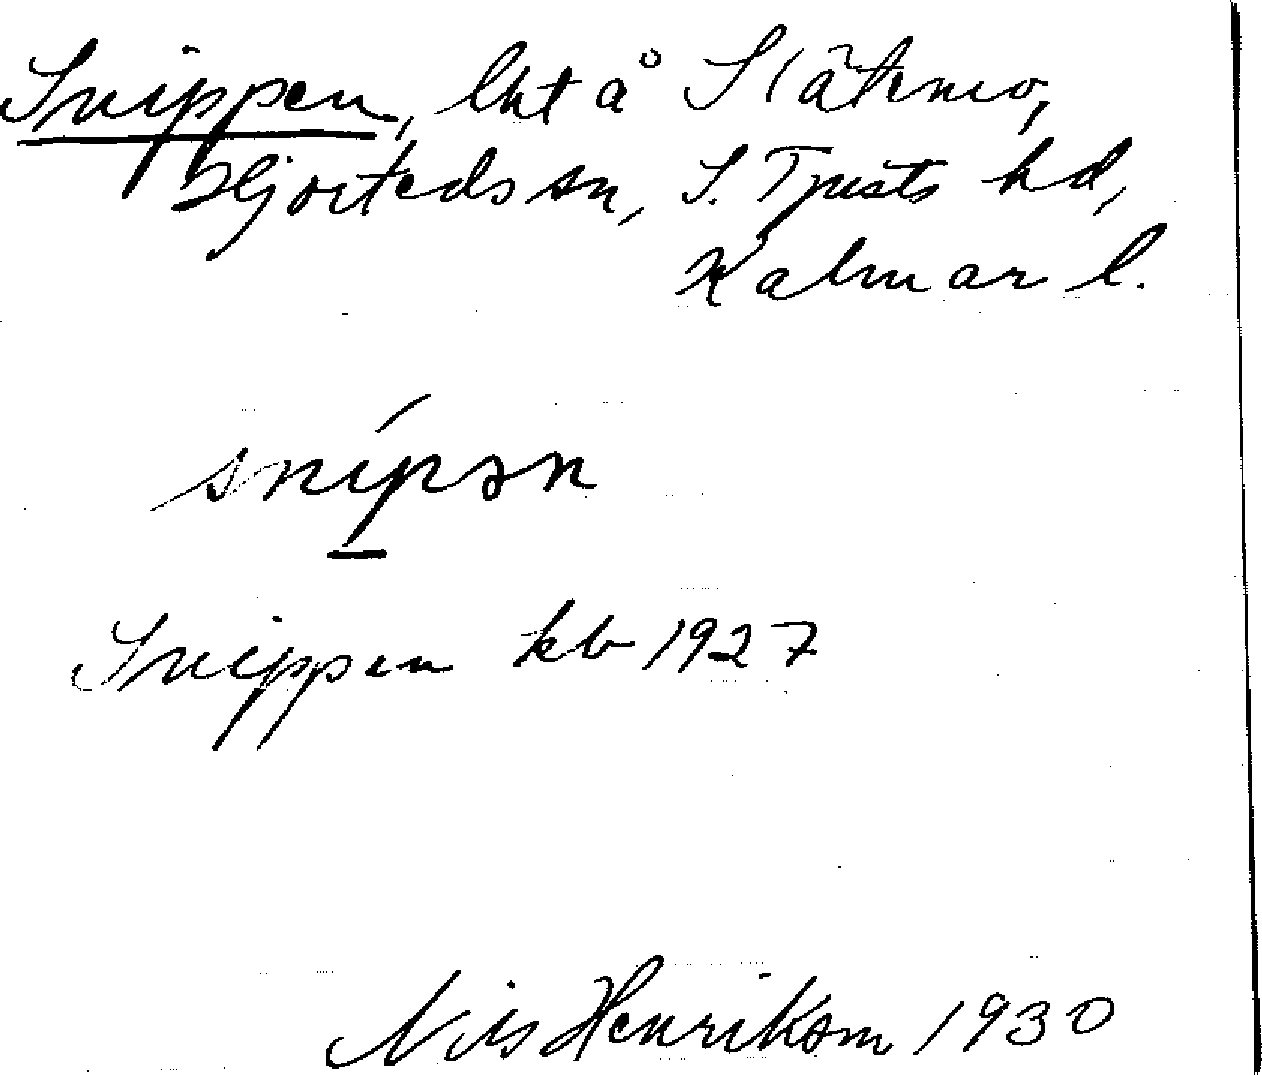 Snippen, lht å Slätemo,
Hjorteds sn, S. Tjusts hd,
Kalmar l.
snípən
Snippen kb 1927
Nils Henrikson 1930